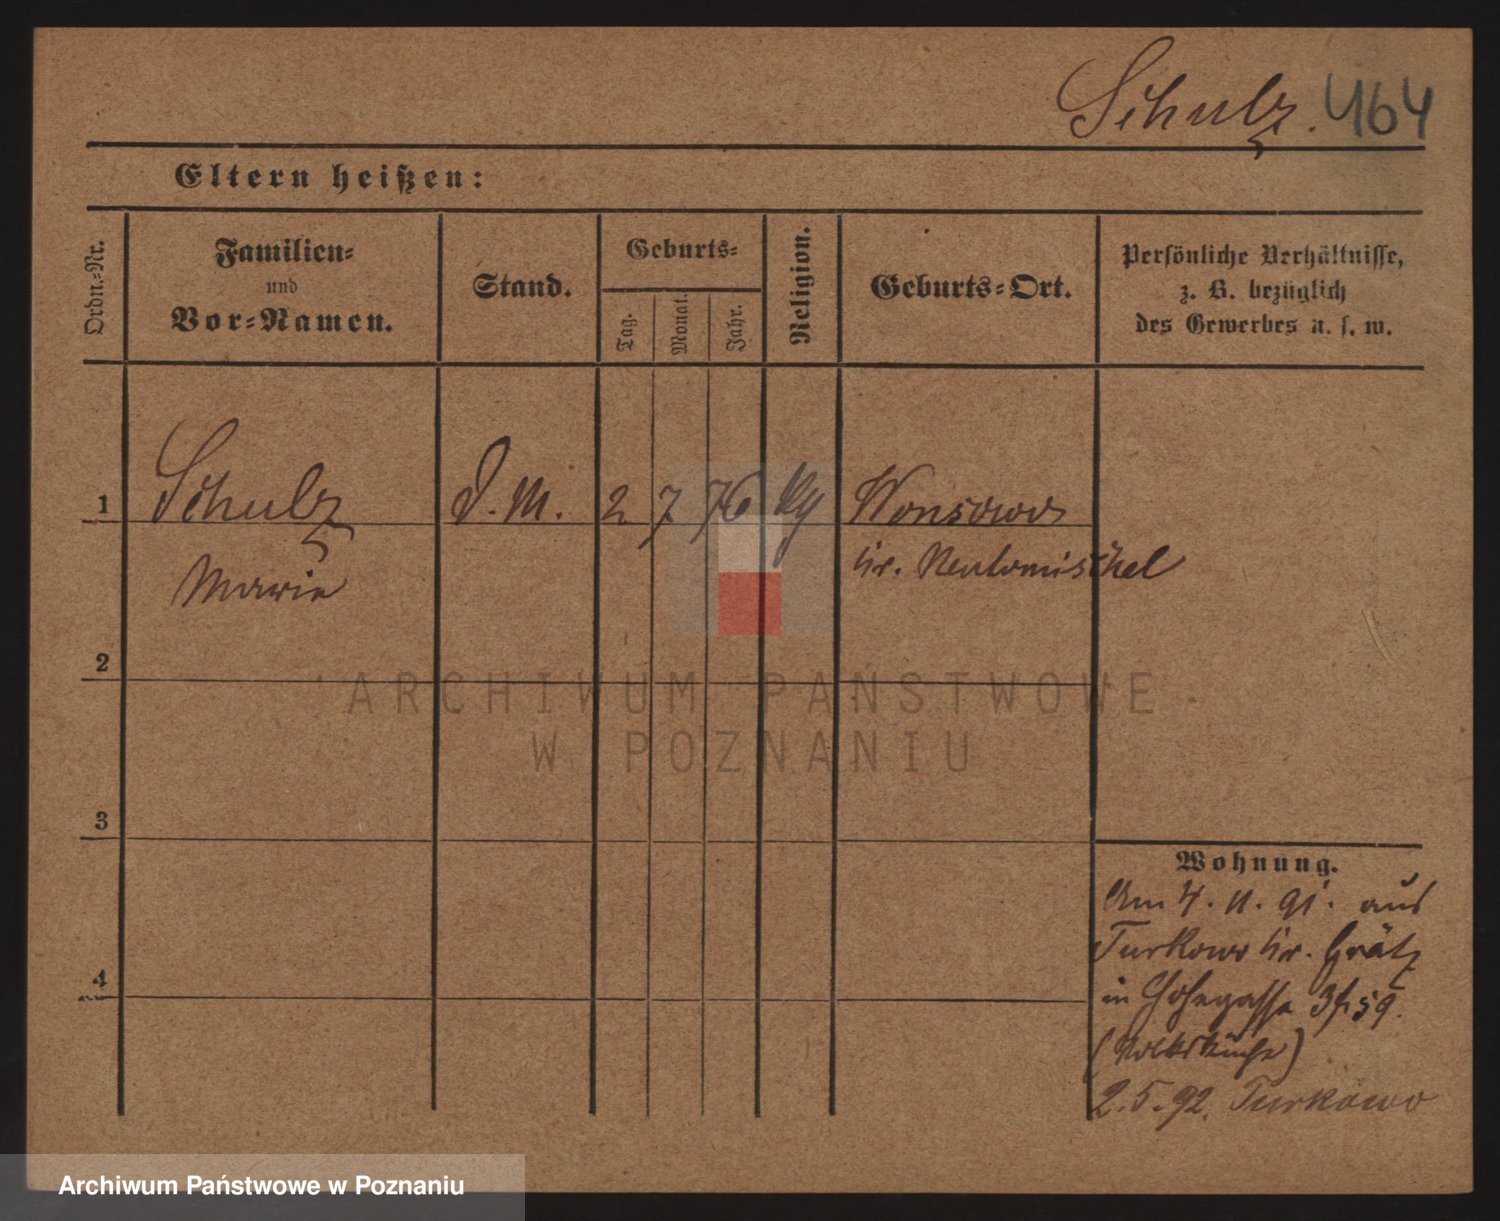 Schulz. 464
Eltern heißen:
Ordn.-Nr.
Familien-
und
Vor-Namen.
Stand.
Geburts-
Tag.
Monat.
Jahr.
Religion.
Geburts-Ort.
Persönliche Verhältnisse,
z. B. bezüglich
des Gewerbes u. s. w.
1 Schulz D. M. 2 7 76 Wonsowo
Marie Kr. Neutomischel
2
ARCHIWUM PAŃSTWOWE
W POZNANIU
3
Wohnung.
Am 4. 11. 91. aus
Turkowo Kr. Grätz
4
in Hohegasse 3
(Volksküche)
2.5.92. Turkowo
Archiwum Państwowe w Poznaniu